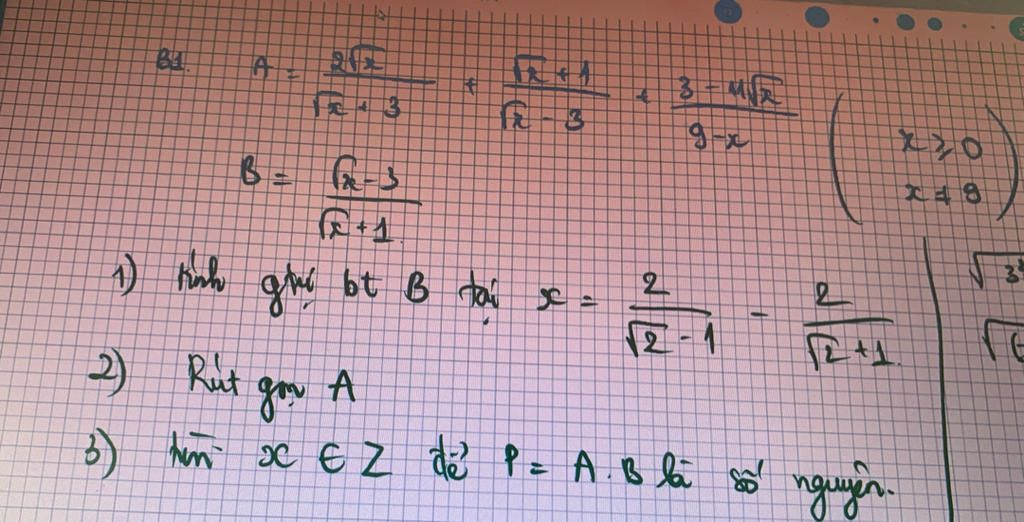 B1. A = 2√x / (√x + 3) + (√x + 1) / (√x - 3) + (3 - 11√x) / (9 - x) (x ≥ 0
x ≠ 9)
B = (√x - 3) / (√x + 1)
1) tính gtrị bt B tại x = 2 / (√2 - 1) - 2 / (√2 + 1)
2) Rút gọn A
3) tìm x ∈ Z để P = A.B là số nguyên.